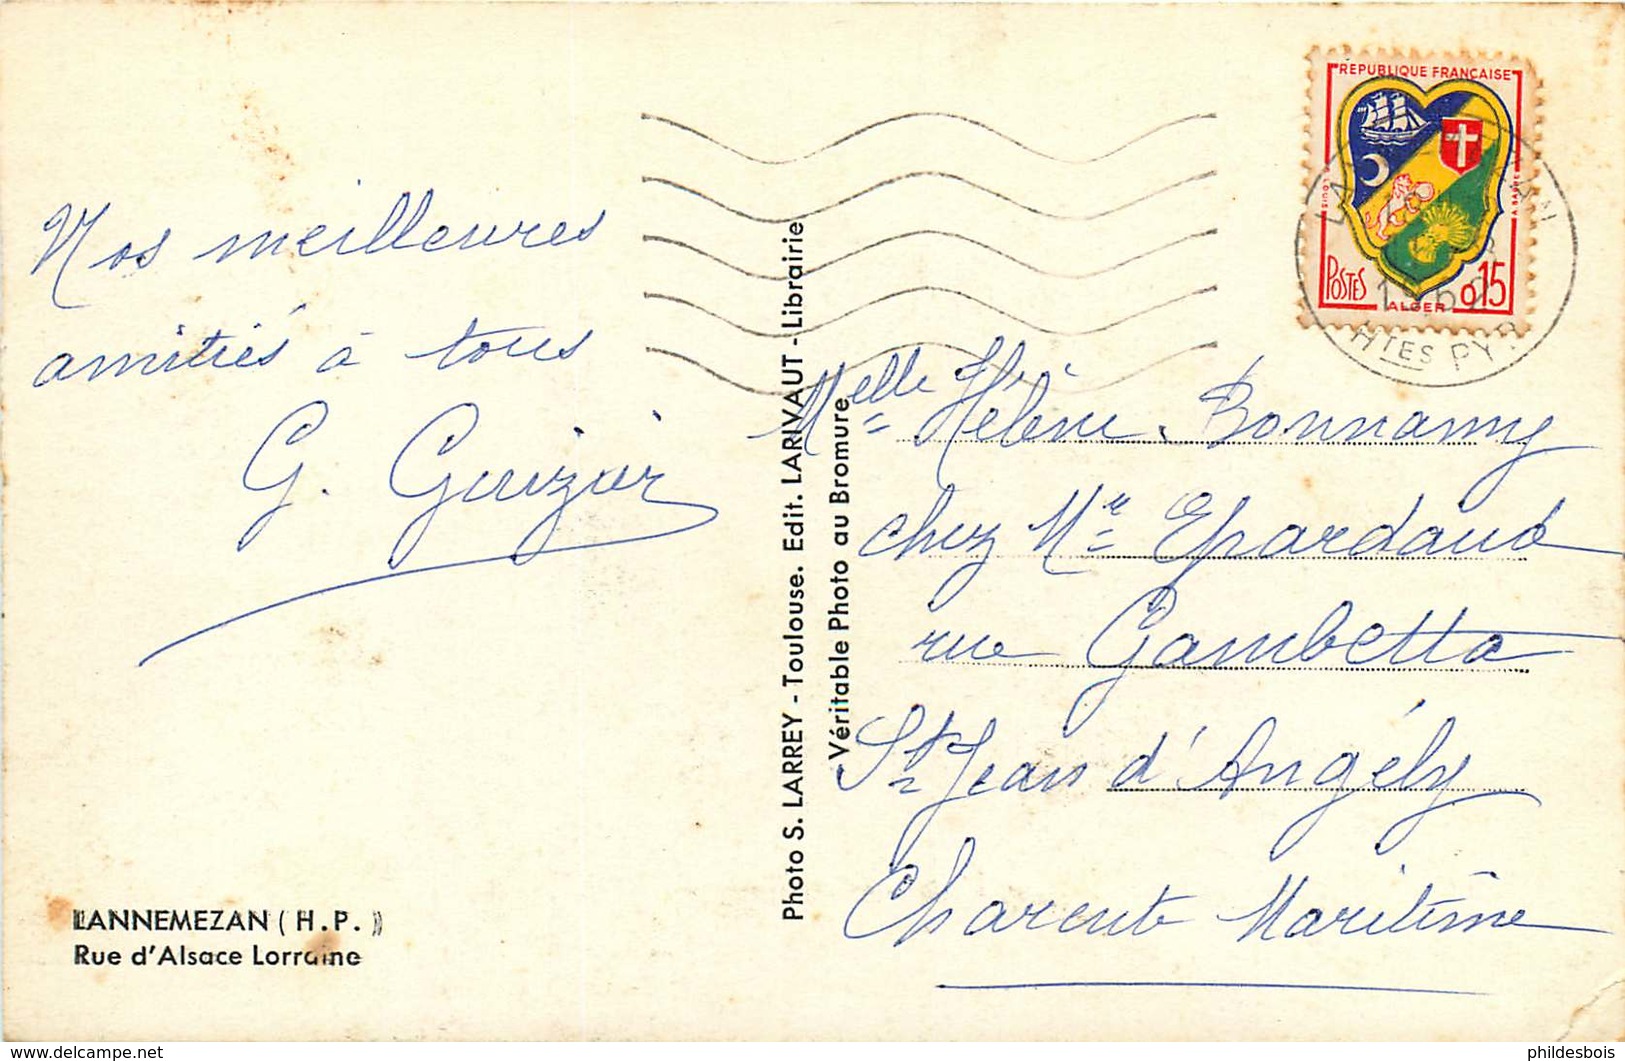 Nos meilleures
amitiés à tous
G.
LANNEMEZAN (H.P.)
Rue d'Alsace Lorraine
Photo S. LARREY - Toulouse. Edit. LARIVAUT - Librairie
Véritable Photo au Bromure
REPUBLIQUE FRANÇAISE
POSTES
ALGER
0,15
LANNEMEZAN
1962
HTES PYR.
Melle Hélène Bonnamy
chez Mr Epardaud
rue Gambetta
St Jean d'Angély
Charente Maritime
delcampe.net
phildesbois